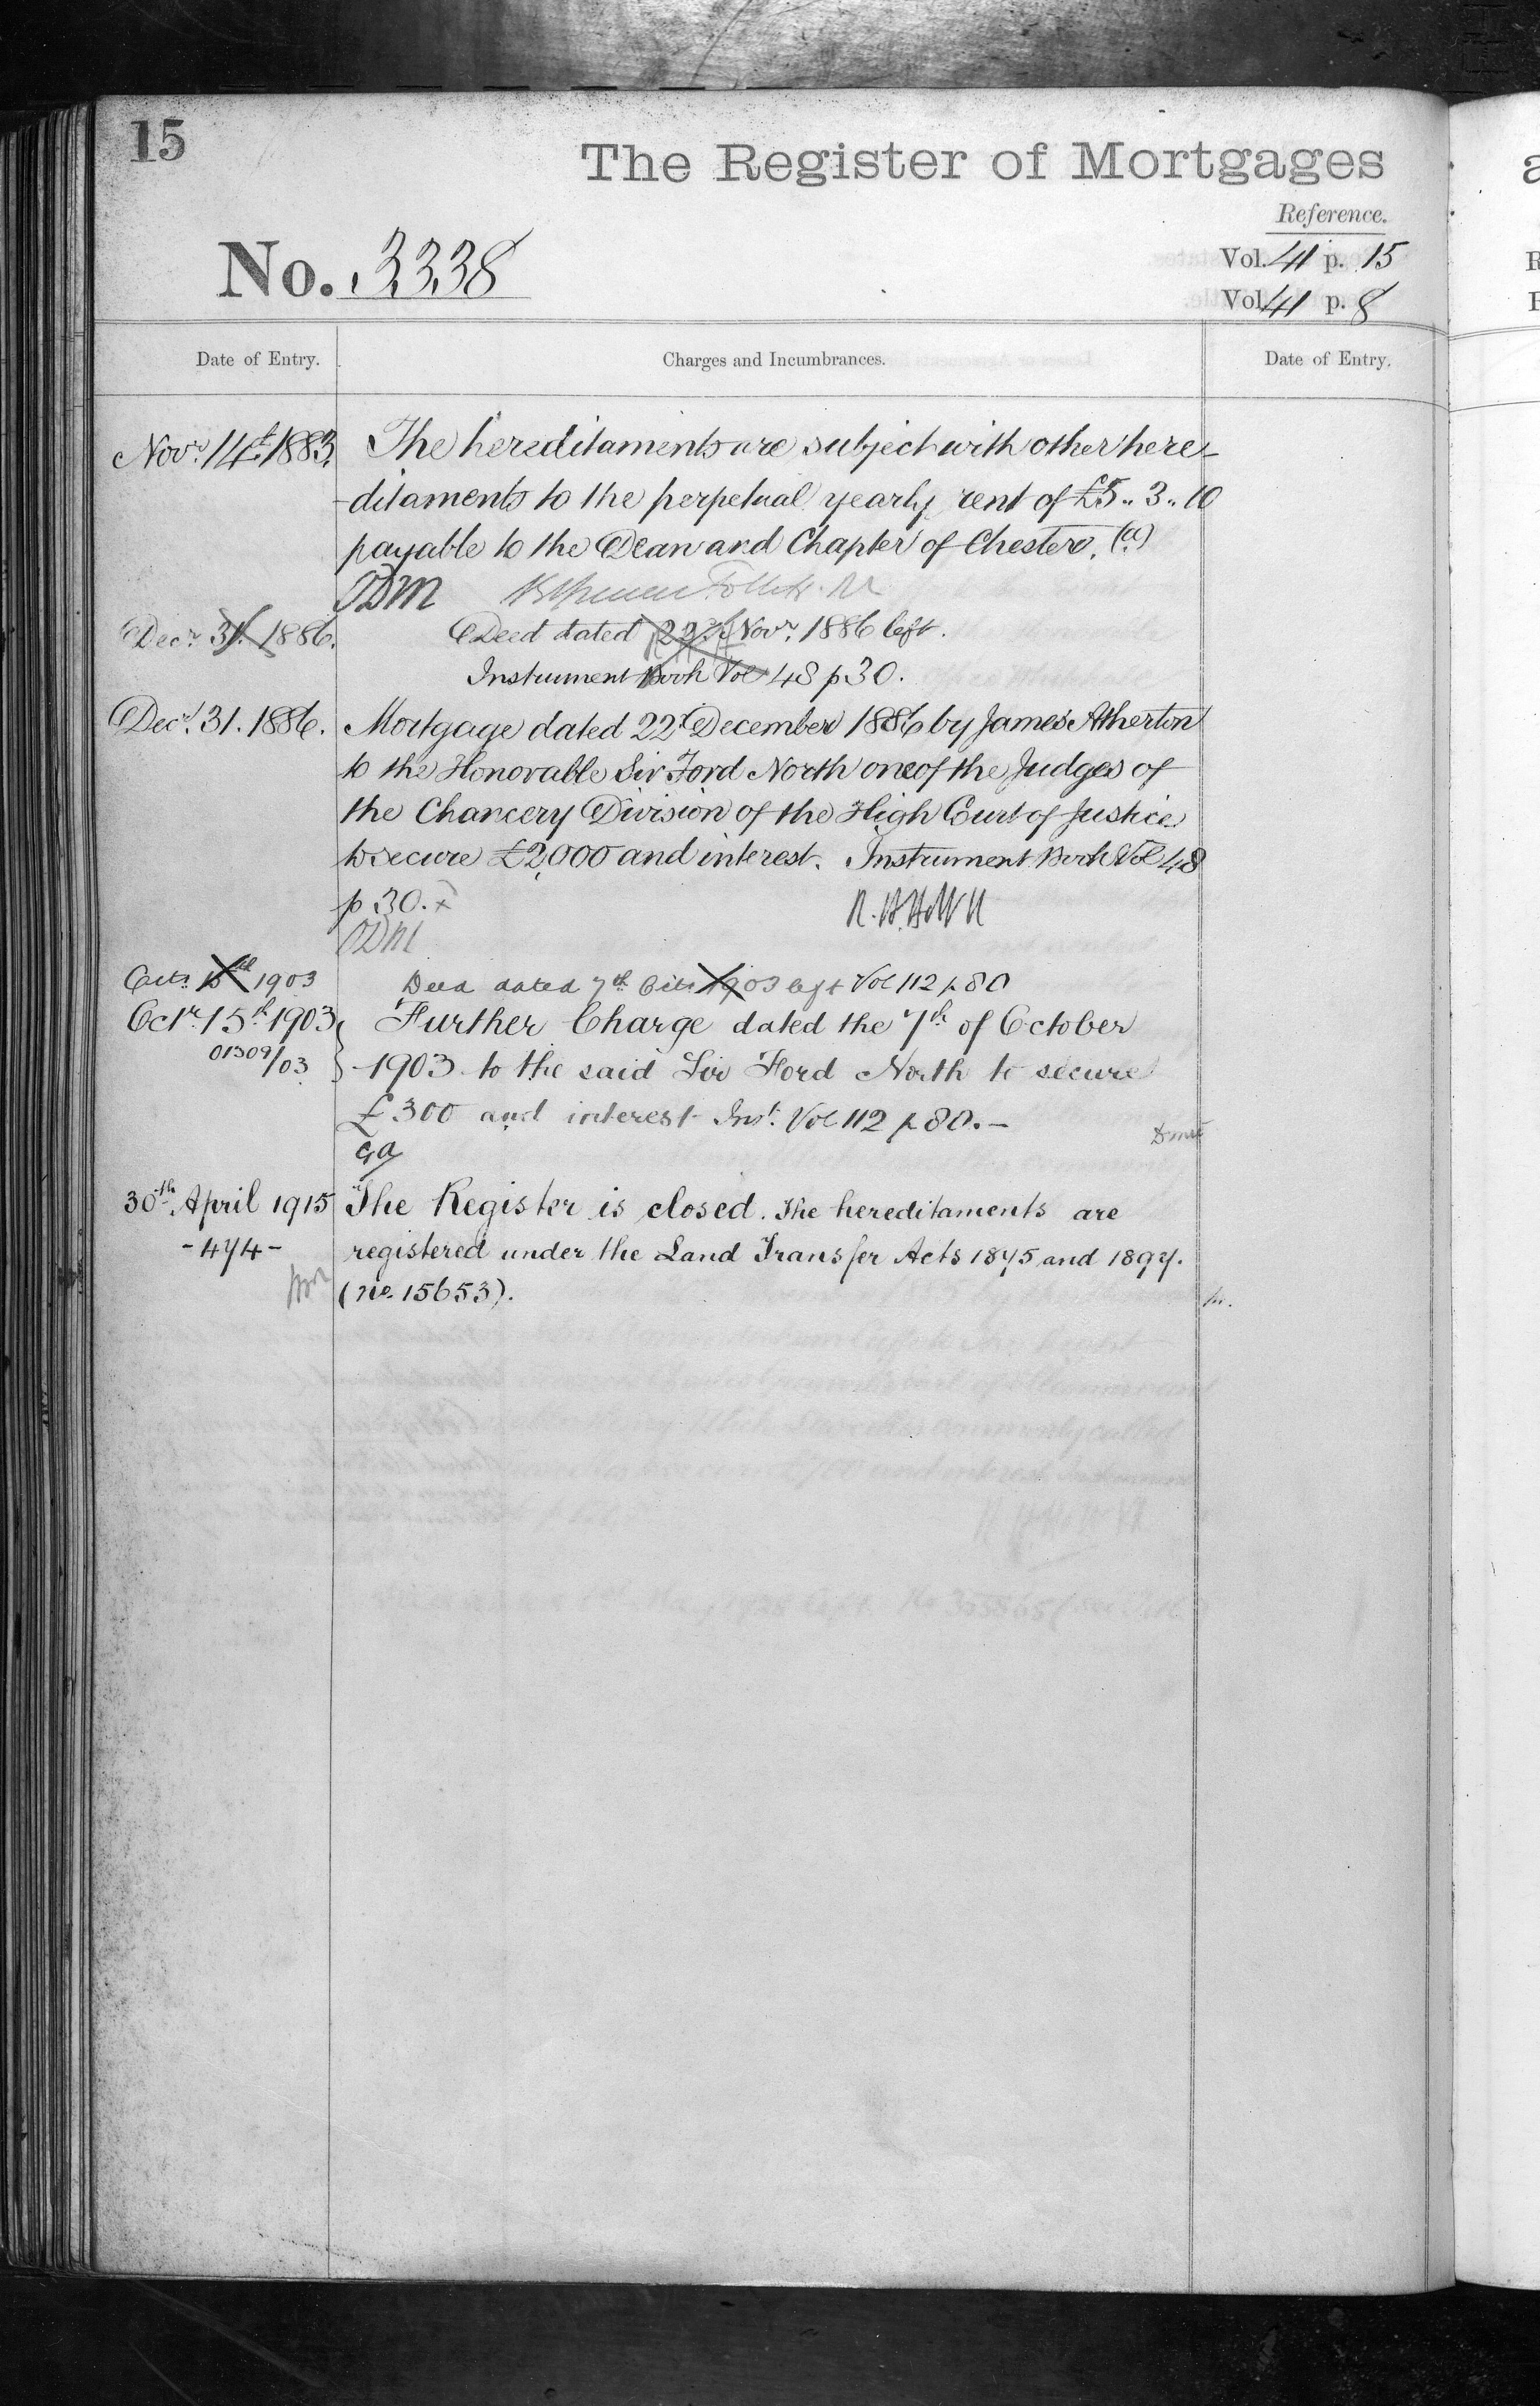 15
The Register of Mortgages
Reference.
No. 3338
Vol. 41 p. 15
Vol. 41 p. 8
Date of Entry.
Charges and Incumbrances.
Date of Entry.
Novr. 14th 1883. The hereditaments are subject with other here-
-ditaments to the perpetual yearly rent of £5.. 3.. 10
payable to the Dean and Chapter of Chester. (a)
ODM
Decr. 31. 1886. Deed dated 22d Novr. 1886 left.
Instrument Book Vol 48 p 30.
Decr. 31. 1886. Mortgage dated 22d December 1886 by James Atherton
to the Honorable Sir Ford North one of the Judges of
the Chancery Division of the High Court of Justice
to secure £2,000 and interest. Instrument Book Vol 48
p 30. x
ODM
Octr. 15th 1903 Deed dated 7th Octr 1903 left Vol 112 p 80
Octr. 15th 1903 Further Charge dated the 7th of October
01309/03 1903 to the said Sir Ford North to secure
£300 and interest Inst. Vol 112 p 80. —
Ga
30th. April 1915 The Register is closed. The hereditaments are
- 474 - registered under the Land Transfer Acts 1875 and 1897.
(No. 15653).